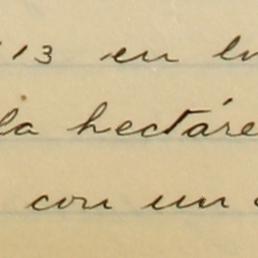 13 en
la hectáre
con un